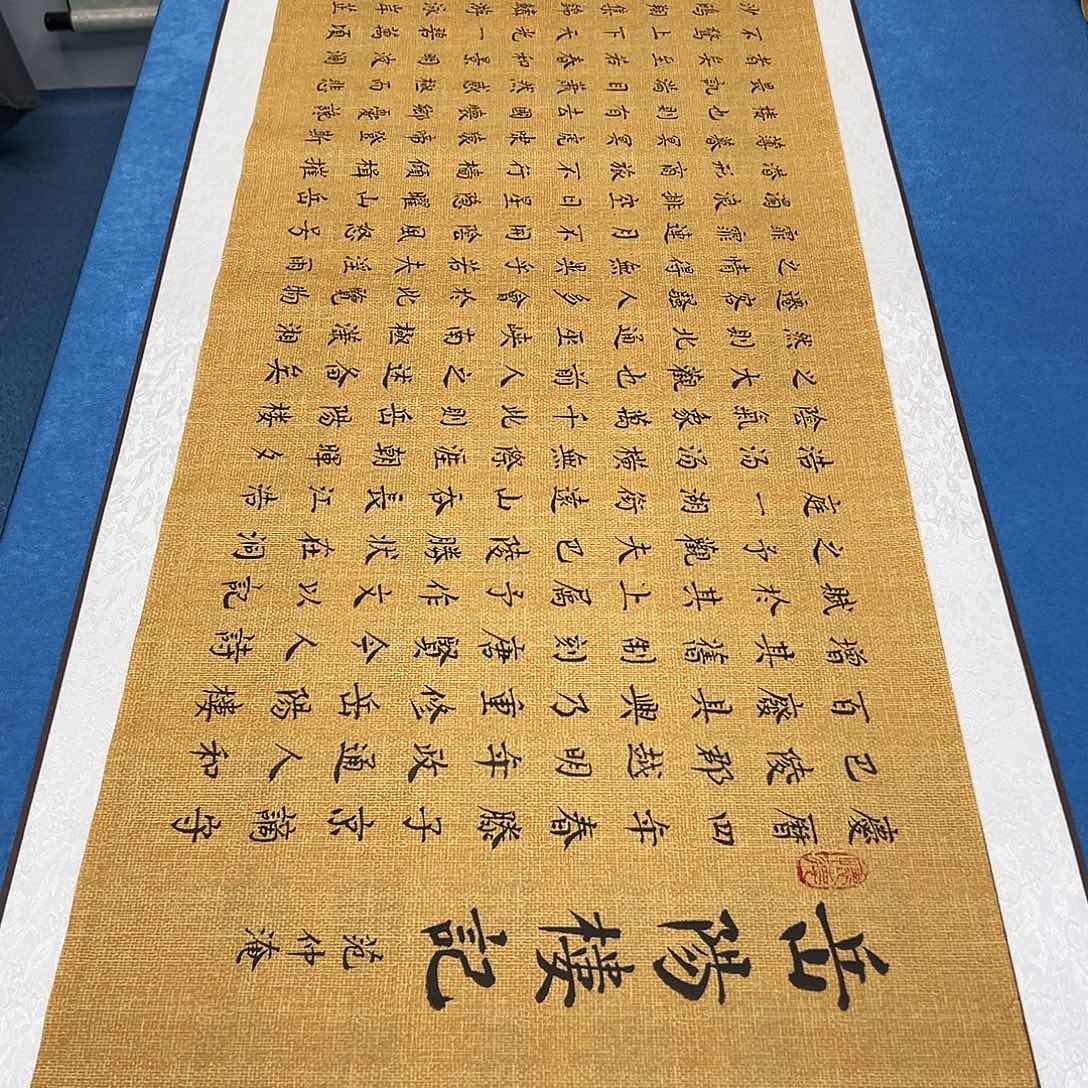 岳陽樓記
范仲淹
慶曆四年春滕子京謫守
巴陵郡越明年政通人和
百廢具興乃重修岳陽樓
增其舊制刻唐賢今人詩
賦於其上屬予作文以記
之予觀夫巴陵勝狀在洞
庭一湖銜遠山吞長江浩
浩湯湯橫無際涯朝暉夕
陰氣象萬千此則岳陽樓
之大觀也前人之述备矣
然則北通巫峽南極瀟湘
遷客騷人多會於此覽物
之情得無異乎若夫淫雨
霏霏連月不開陰風怒号
濁浪排空日星隱曜山岳
潛形商旅不行檣傾楫摧
薄暮冥冥虎嘯猿啼登斯
樓也則有去國懷鄉憂讒
畏譏滿目蕭然感極而悲
者矣至若春和景明波瀾
不驚上下天光一碧萬頃
沙鷗翔集錦鱗游泳岸芷